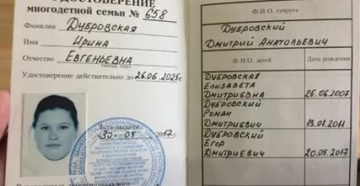 УДОСТОВЕРЕНИЕ
многодетной семьи № 658
Фамилия Дубровская
Имя Ирина
Отчество Евгеньевна
Удостоверение действительно до 26.06.2025г.
Дата выдачи
Ф.И.О. супруга
Дубровский
Дмитрий Анатольевич
Ф.И.О. детей Дата рождения
Дубровская
Елизавета
Дмитриевна 26.06.2007
Дубровский
Роман
Дмитриевич
Дубровский
Егор
Дмитриевич 20.05.2017